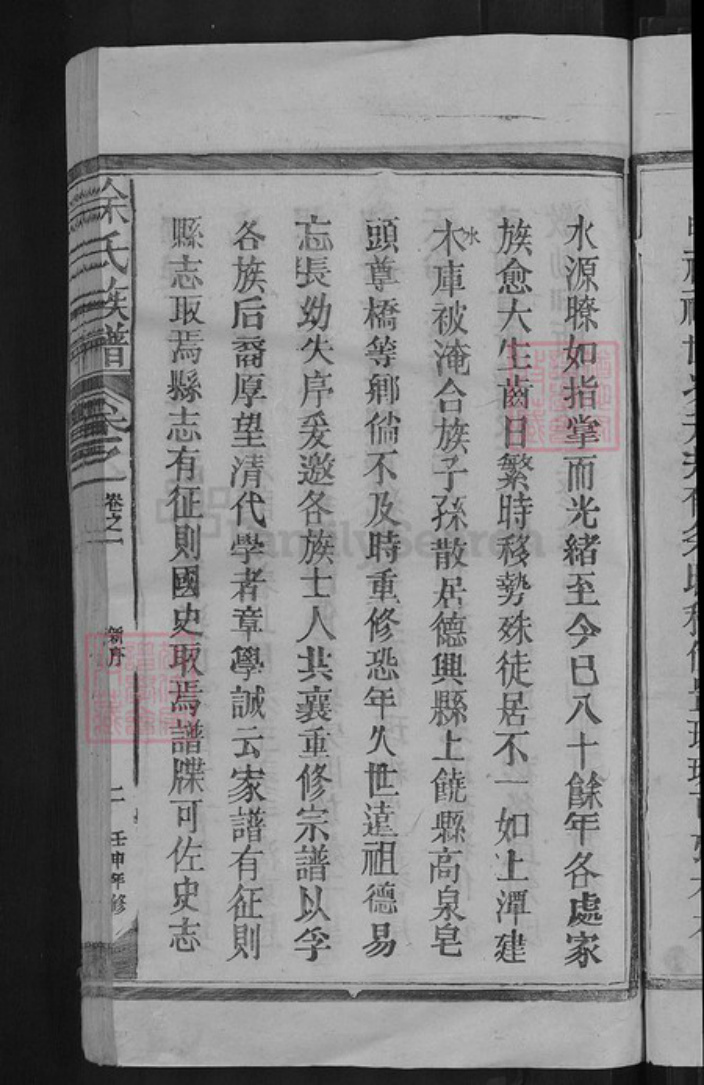 水源瞭如指掌而光緒至今已八十餘年各處家
族愈大生齒日繁時移勢殊徒居不一如上潭建
木水庫被淹合族子孫散居德興縣上饒縣高泉皂
頭尊橋等鄉倘不及時重修恐年久世遠祖德易
忘長幼失序爰邀各族士人共襄重修宗譜以孚
各族后裔厚望清代學者章學誠云家譜有征則
縣志取焉縣志有征則國史取焉譜牒可佐史志
余氏族譜 卷之一
卷之一 新序 二 壬申年修
FamilySearch